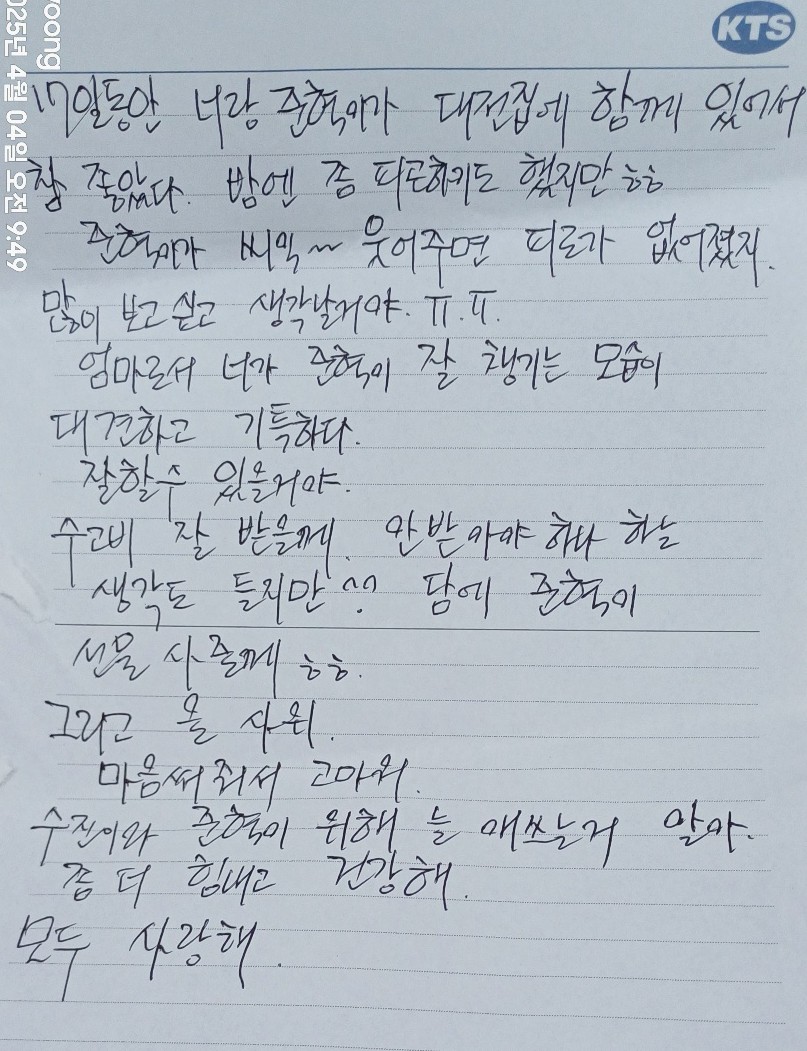 KTS
oong
025년 4월 04일 오전 9:49
17일동안 너랑 준혁이가 대전집에 함께 있어서
참 좋았다. 밤엔 좀 피곤하기도 했지만 ㅎㅎ
준혁이가 씨익~ 웃어주면 피로가 없어졌지.
많이 보고싶고 생각날거야. ㅠ.ㅠ.
엄마로서 너가 준혁이 잘 챙기는 모습이
대견하고 기특하다.
잘할수 있을거야.
수고비 잘 받을께. 안받아야 하나 하는
생각도 들지만 ^^ 담에 준혁이
선물 사줄께 ㅎㅎ.
그리고 올 사위.
마음써줘서 고마워.
수진이와 준혁이 위해 늘 애쓰는거 알아.
좀 더 힘내고 건강해.
모두 사랑해.